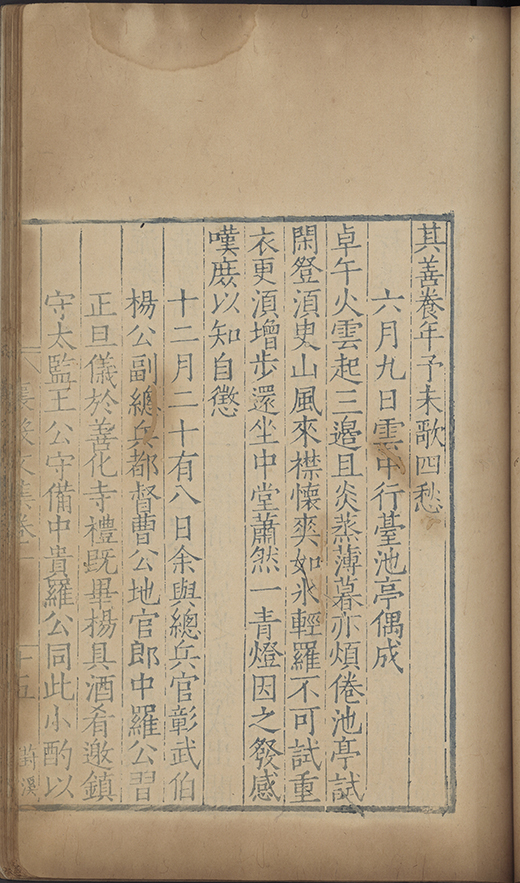 其善養年予未歌四愁
六月九日雲中行䑓池亭偶成
卓午火雲起三邉且炎蒸薄暮亦煩倦池亭試
閑登湏㬰山風來襟懷爽如氷輕羅不可試重
衣更湏增步還坐中堂蕭然一青燈因之發感
嘆庶以知自懲
十二月二十有八日余與總兵官彰武伯
楊公副總兵都督曹公地官郎中羅公習
正旦儀於善化寺禮旣畢楊具酒肴邀鎮
守太監王公守備中貴羅公同此小酌以
襄毅文集卷一 十五